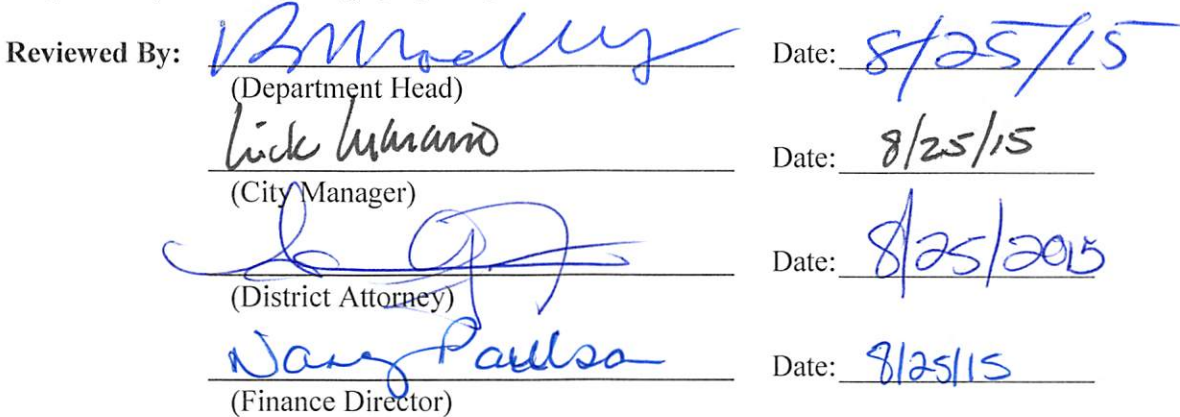 Reviewed By: Date: 8/25/15
(Department Head)
Nick Marano Date: 8/25/15
(City Manager)
Date: 8/25/2015
(District Attorney)
Nancy Paulson Date: 8/25/15
(Finance Director)